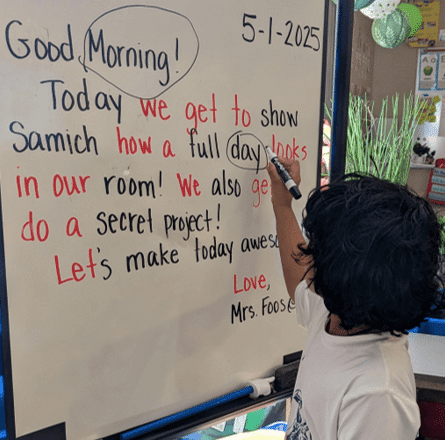 5-1-2025
Good Morning!
Today we get to show
Samich how a full day looks
in our room! We also
do a secret project!
Let's make today
Love,
Mrs.